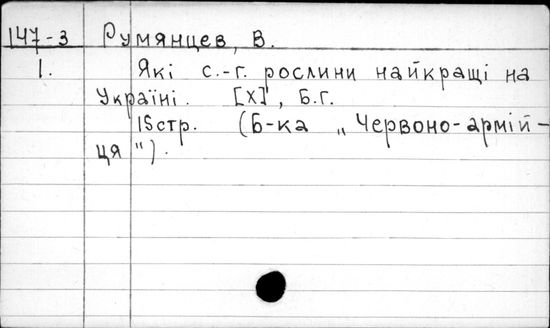 147-3 Румянцев, В.
1. Які с.-г. рослини найкращі на
Україні. [Х], Б.г.
15стр. (Б-ка „Червоно-армій-
ця").